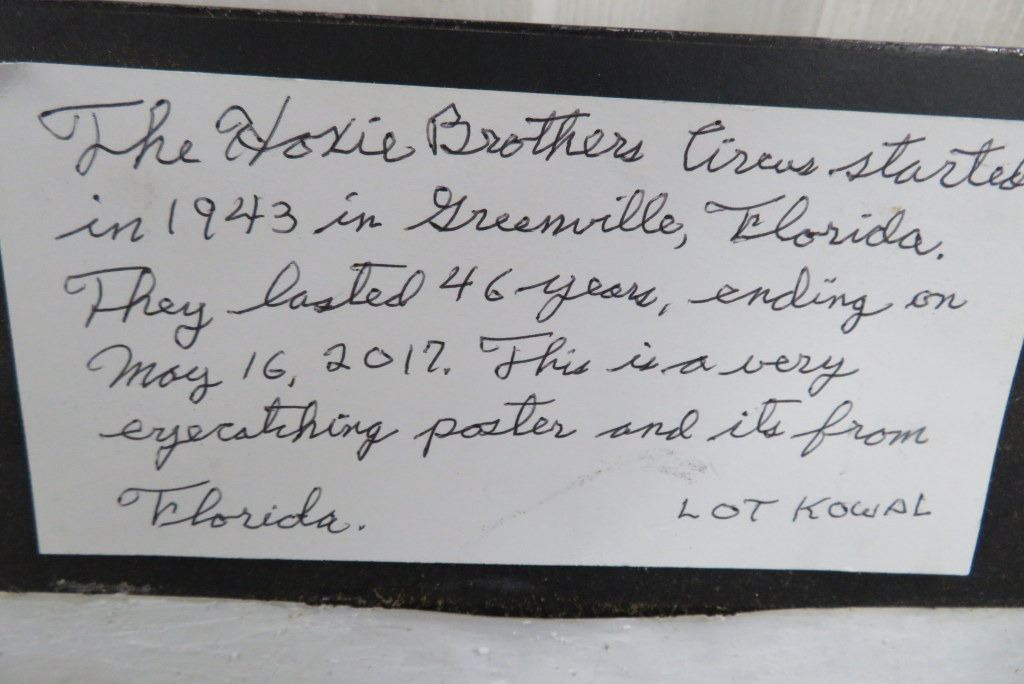 The Hoxie Brothers Circus started
in 1943 in Greenville, Florida.
They lasted 46 years, ending on
May 16, 2017. This is a very
eyecatching poster and its from
Florida.
LOT KOWAL